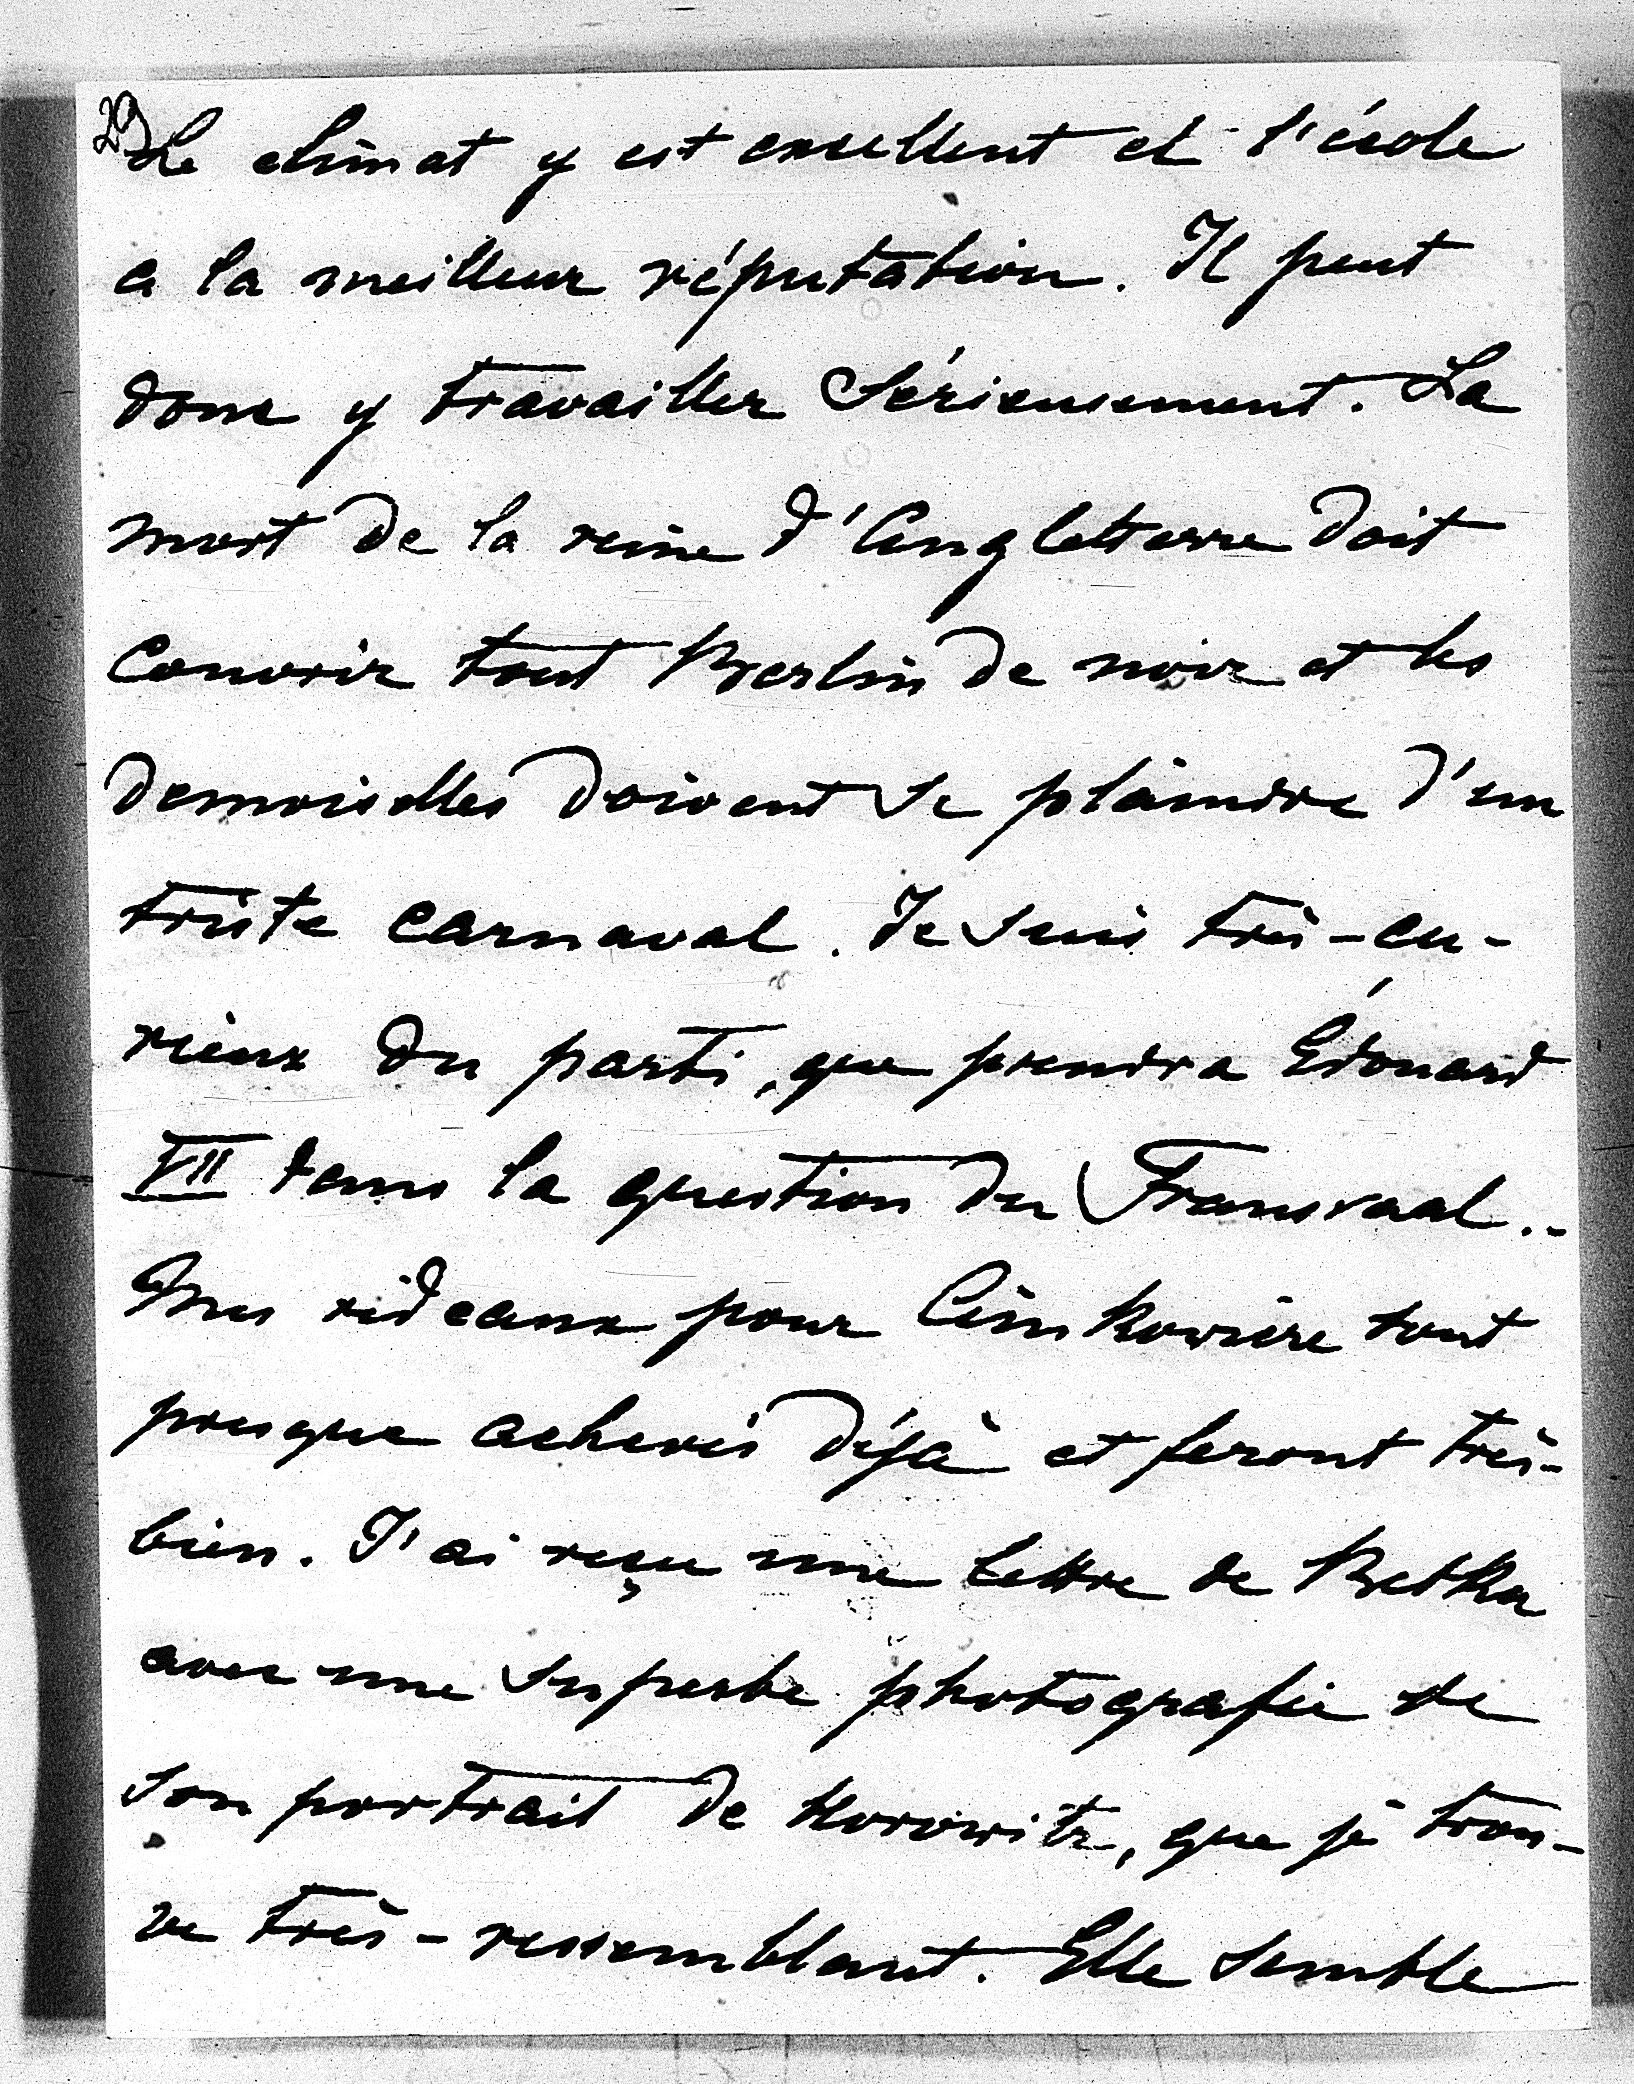 29
Le climat y est excellent et l'école
a la meilleur réputation. Il peut
donc y travailler sérieusement. La
mort de la reine d'Angletterre doit
couvrir tout Berlin de noir et les
demoiselles doivent se plaindre d'un
triste carnaval. Je suis très-cu-
rieux du parti, que prendra Edouard
VII dans la question du Transvaal..-
Mes rideaux pour sont
presque achevés déjà et feront très-
bien. J'ai reçu une lettre de Betka
avec une superbe photografie de
son portrait de Horowitz, que je trou-
ve très-ressemblant. Elle semble